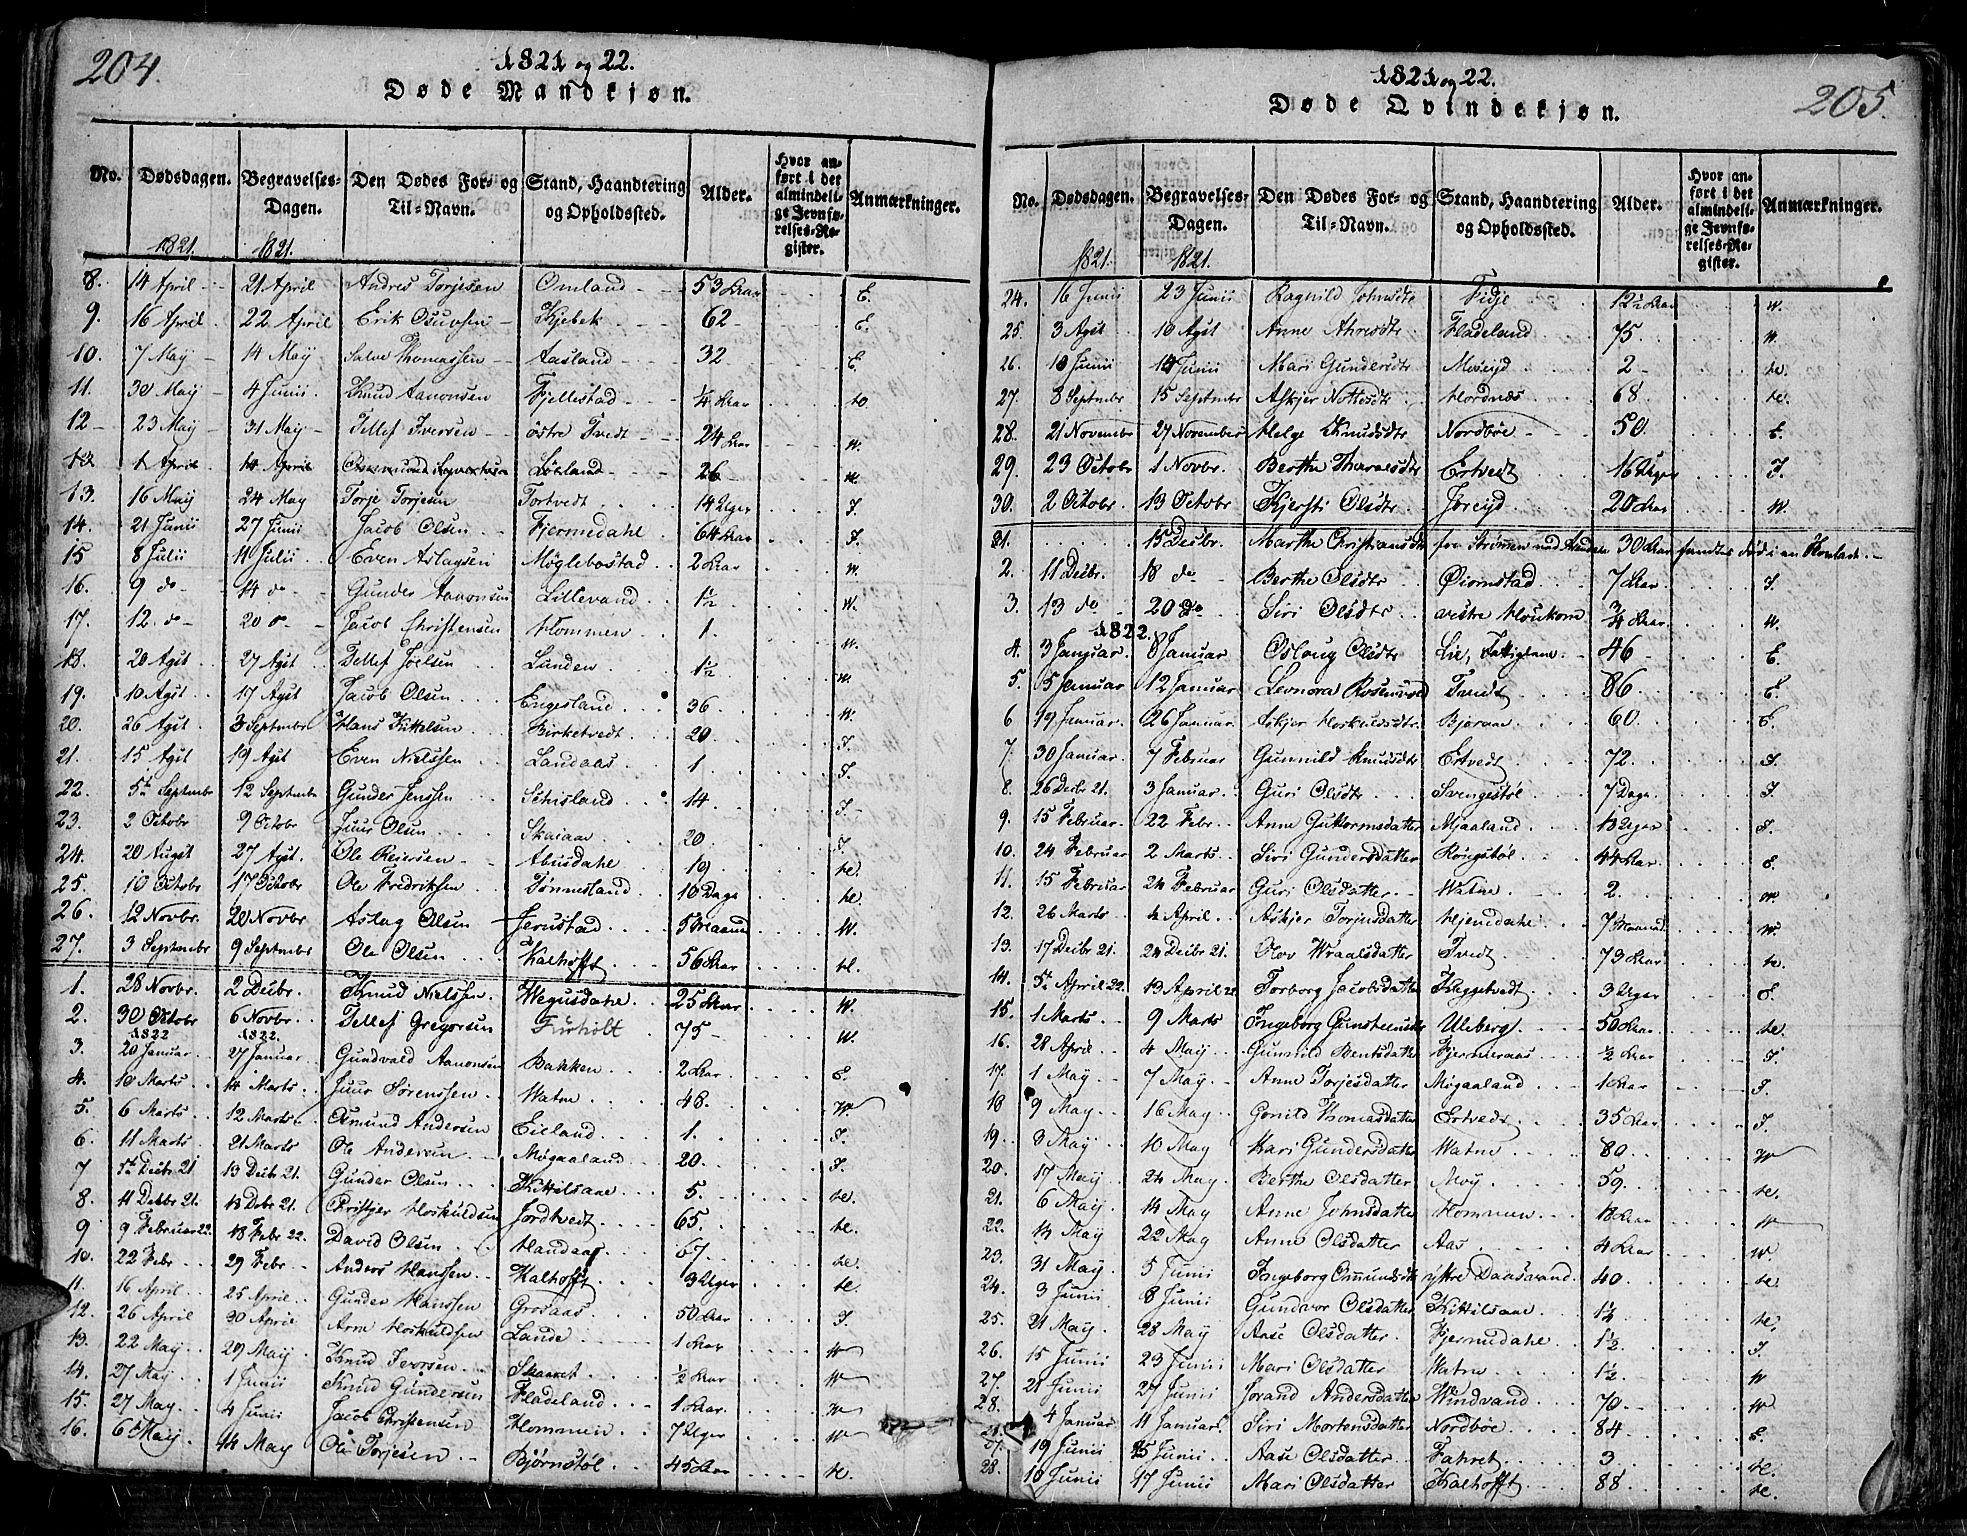 204.
1821 og 22.
Døde Mandkjøn.
No. Dødsdagen. Begravelses-Dagen. Den Dødes For- og Til-Navn. Stand, Haandtering og Opholdssted. Alder. Hvor anført i det almindelige Jevnførelses-Register. Anmærkninger.
1821. 1821.
8. 14 April 21 April Andres Torjesen Omland 53 Aar E.
9. 16 April 22 April Erik Kjebek 62 E.
10. 7 May 14 May Salve Thomassen Aasland 32 E.
11. 30 May 4 Junii Knud Aanonsen Fjellestad 1/4 Aar
12 23 May 31 May Tellef Iversen østre Tvedt 24 Aar W.
1 April 14 April Løkland 26 W.
13. 16 May 24 May Torje Torjesen Tortvedt 14 Uger I.
14. 21 Junii 27 Junii Jacob Olsen Fjermedahl 64 Aar I.
15 8 Julii 11 Julii Even Aslagsen Møglebostad 2 Aar W.
16. 9 do 14 do Gunder Aanonsen Lillevand 1 1/2 W.
17. 12. do 20 do Jacob Christensen Hommen 1. W.
18. 20 Agst 27 Agst Tellef Joelsen Lunden 1 1/2 W.
19. 10 Agst 17 Agst Jacob Olsen Engesland 36 W.
20. 26 Agst 3 Septembr Hans Kittelsen Birketvedt 20 I.
21. 15 Agst 19 Agst Even Nielssen Landaas 1 I.
22. 5te Septembr 12 Septembr Gunder Jenssen Schisland 14 I.
23. 2 Octobr 9 Octobr Juur Olsen Skaiaae 20 I.
24. 20 Augst 27 Agst. Ole Reiersen Abusdahl 19 He.
25. 10 Octobr 17 Octobr Ole Fredriksen Tønnesland 10 Dage He.
26. 12 Novbr. 20 Novbr Aslag Olsen Jerustad 5 Maaned W.
27. 3 Septembr 9 Septembr Ole Olsen Kalhofft 56 Aar He.
1. 28 Novbr. 2 Decbr. Knud Nielssen Wegusdahl 25 Aar W.
2. 30 Octobr 6 Novbr. Tellef Gregorsen Furholt 75 W.
1822 1822.
3. 20 Januar 27 Januar Gundvald Aanonsen Bakken 2 Aar E.
4. 10 Marts 14 Marts Juur Sørenssen Watne 48. W
5. 6 Marts 12 Marts Osmund Andersen Eieland 1. I.
6. 11 Marts 21 Marts Ole Andersen Møgaaland 20. I.
7 5te Decbr. 21 13 Decbr. 21. Gunder Olsen Kittilsaae 5. He.
8 11 Decbr 21. 18 Debr 21. Christjer Hoskuldsen Jordtvedt 65. He.
9 9 Februar 22. 18 Febr 22. David Olsen Handaas 67. He.
10. 22 Febr 29 Febr Anders Hanssen Kalhofft 3 Uger He.
11. 16 April 25 April Gunder Hanssen Grosaas 50 Aar I.
12. 26 April 30 April Arne Hoskuldsen Lande 1 Aar W
13. 22 May 29 May Knud Iversen Skaaret 1/2 Aar W
14. 27 May 1 Junii Knud Gundersen Fladeland 1 Aar W
15. 27 May 4 Junii Jacob Christensen Hommen 7 Uger W
16. 6 May 14 May Ole Torjesen Bjørnstøl 45 Aar He.
205.
1821 og 22.
Døde Qvindekjøn.
No. Dødsdagen. Begravelses-Dagen. Den Dødes For- og Til-Navn. Stand, Haandtering og Opholdssted. Alder. Hvor anført i det almindelige Jevnførelses-Register. Anmærkninger.
1821. 1821.
24. 16 Junii 23 Junii Ragnild Johnsdtr Fidje 12 1/2 Aar W.
25. 3 Agst 10 Agst Anne Fladeland 75 W.
26. 10 Junii 14 Junii Mari Gundersdtr Moseid 2 He.
27 8 Septembr 15 Septembr Askjer Hordnæs 68 He.
28. 21 Novembr 27 November Helge Knudsdtr Nordbøe 50 E.
29. 23 Octobr 1 Novbr. Berthe Ertvedt 16 Uger I.
30. 2 Octobr 13 Octobr Kjersti Olsdtr Joreid 20 Aar W.
31. 15 Decbr. Marthe Christiansdtr fra Strømmen ved Arendal 30 Aar fundtes død i en
2. 11 Decbr. 18 do Berthe Olsdtr Øiornstad 7 Aar I.
3. 13 do 20 do Siri Olsdtr vestre Houkom 3/4 Aar W.
1822.
4. 3 Januar 8 Januar Oslaug Olsdtr Lie, Fattiglem 46 E.
5. 5 Januar 12 Januar Leonora Rosenvold Tvedt 86 E.
6 19 Januar 26 Januar Askjer Hoskuldsdtr Bjoraae 60 E.
7. 30 Januar 7 Februar Gunnild Knudsdtr Ertvedt 72 I.
8. 26 Decbr 21. 3 Januar Guri Olsdtr Svengestøl 7 Dage I.
9. 15 Februar 22 Febr. Anne Guttormsdatter Mjaaland 18 Uger I.
10. 24 Februar 2 Marts Siri Gundersdatter Røngstøl 44 Aar E.
11. 15 Februar 24 Februar Guri Olsdatter Watne 2. W
12. 26 Marts 4 April Askjer Torjusdatter Hjemdahl 7 Maaned W.
13. 17 Decbr 21. 24 Decbr 21. Olov Wraalsdatter Tvedt 73 Aar He.
14. 5te April 22. 13 April 22 Torborg Jacobsdatter Kleppetvedt 3 Uger E.
15. 1 Marts 9 Marts Ingeborg Gunsteensdtr Uleberg 50 Aar He.
16. 28 April 4 May Gunnild Bentsdatter Fjermeraas 1/2 Aar I.
17. 1 May 7 May Anne Torjesdatter Møgaaland 1 Aar I.
18 9 May 16 May Gonild Thomasdatter Ertvedt 35 Aar I.
19. 3 May 10 May Kari Gundersdatter Watne 80 W
20. 17 May 24 May Berthe Olsdatter Moy 59. He.
21. 6 May 14 May Anne Johnsdatter Hommen 18 Aar W
22. 14 May 22 May Anne Olsdatter Aas 4 Aar W.
23. 31 May 5 Junii Ingeborg Omundsdtr ytre Daasvand 40 He.
24. 3 Junii 8 Junii Gundvor Olsdatter Kittilsaae 1 1/2 He.
25. 21 May 28 May Aase Olsdatter Fjermedahl 1 1/2. I.
26. 15 Junii 23 Junii Mari Olsdatter Watne 1 1/2. W
27. 21 Junii 27 Junii Jorand Andersdatter Windvand 70 W
28. 4 Januar 11 Januar Siri Mortensdatter Nordbøe 84 E.
27. 19 Junii 25 Junii Aase Olsdatter Fahret 3 He.
28. 10 Junii 17 Junii Mari Olsdatter Kalhofft 88 He.